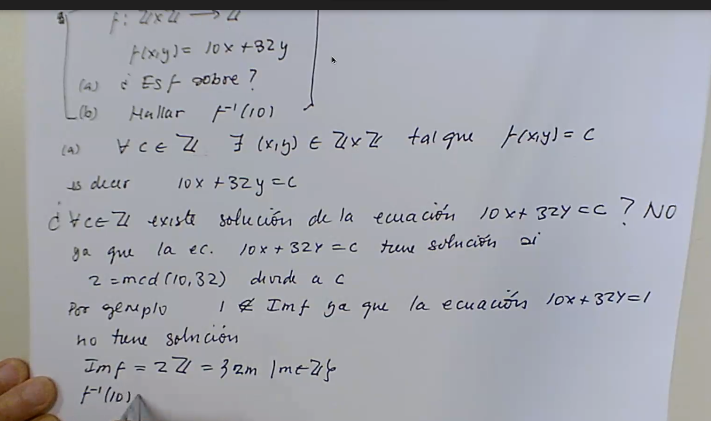 f: ℤ×ℤ → ℤ
f(x,y) = 10x + 32y
(a) ¿ Es f sobre ?
(b) Hallar f⁻¹(10)
(a) ∀ c ∈ ℤ ∃ (x,y) ∈ ℤ×ℤ tal que f(x,y) = c
es decir 10x + 32y = c
¿ ∀ c ∈ ℤ existe solución de la ecuación 10x + 32y = c ? NO
ya que la ec. 10x + 32y = c tiene solución si
2 = mcd (10,32) divide a c
Por ejemplo 1 ∉ Im f ya que la ecuación 10x + 32y = 1
no tiene solución
Im f = 2ℤ = {2m | m ∈ ℤ}
f⁻¹(10)